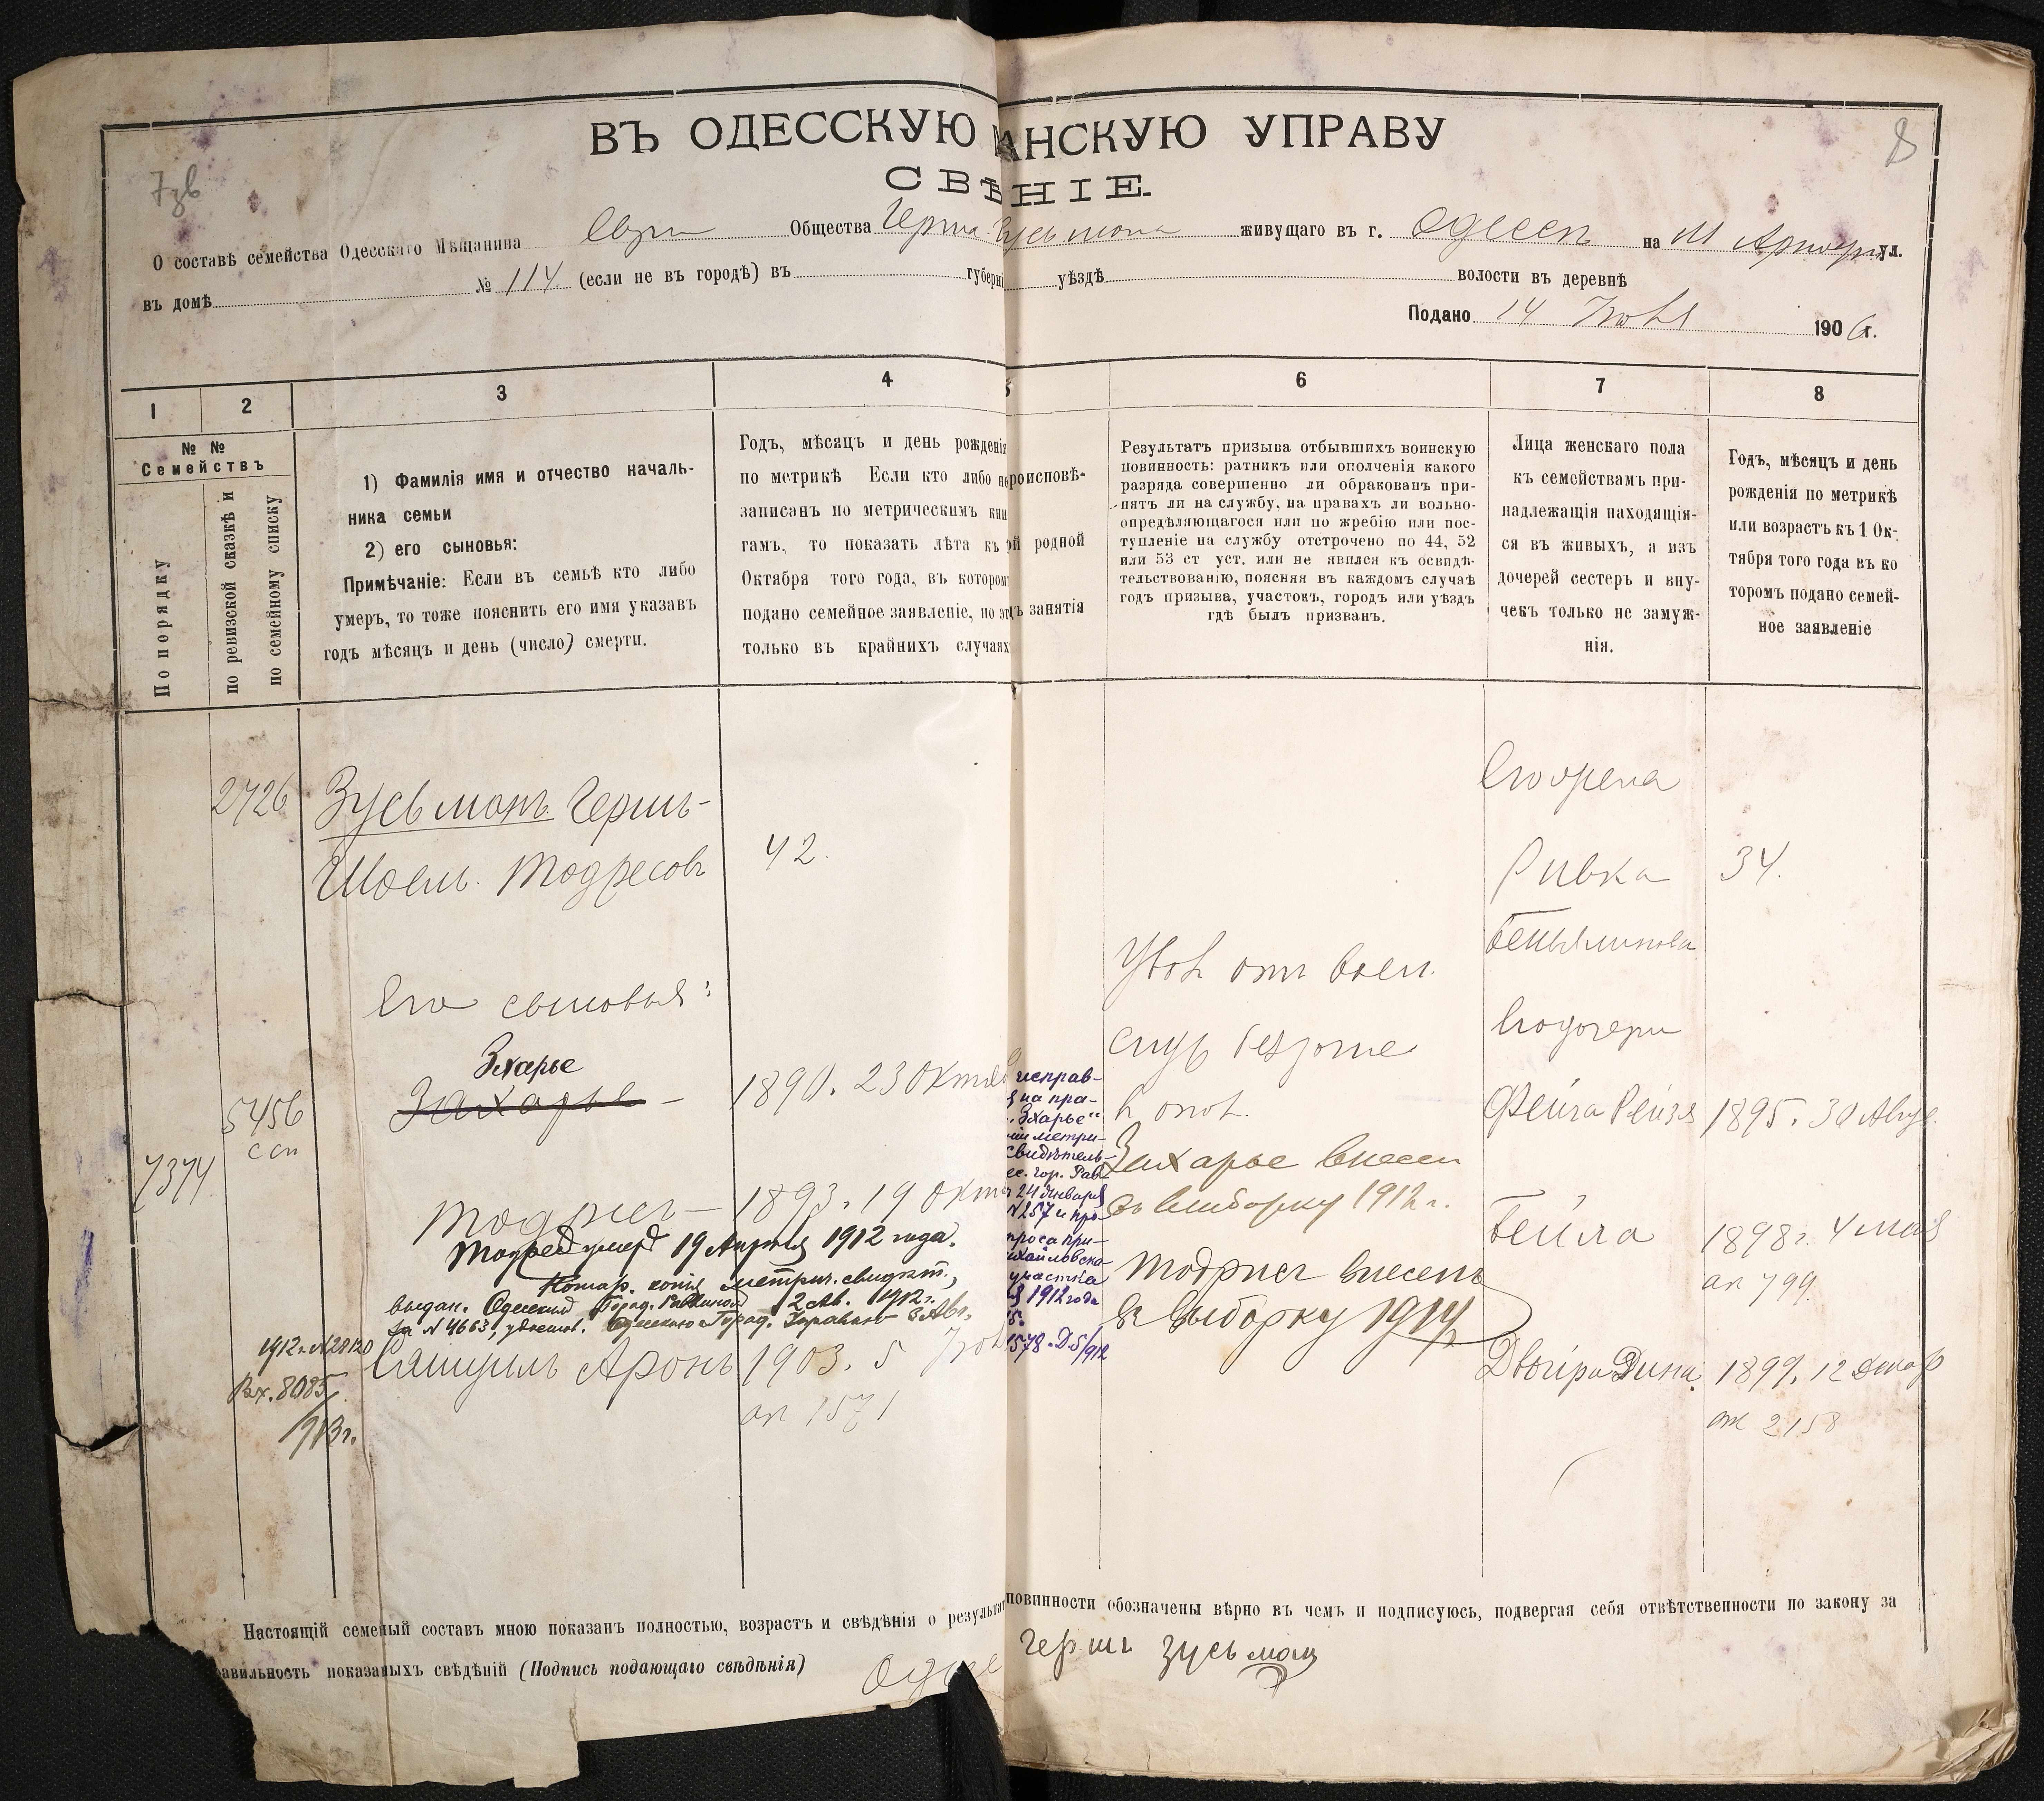 ВЪ ОДЕССКУЮ АНСКУЮ УПРАВУ
8
СВѢНІЕ.
О составѣ семейства Одесскаго Мѣщанина Евр Общества Герша Зусьмона живущаго въ г. Одессѣ на М Арнаут ул.
въ домѣ № 114. (если не въ городѣ) въ губерні уѣздѣ волости въ деревнѣ
Подано 14 1906 г.
1 2 3 4 6 7 8
№ №
Семействъ
По порядку
по ревизской сказкѣ и
по семейному списку
1) Фамилія имя и отчество началь-
ника семьи
2) его сыновья:
Примѣчаніе: Если въ семьѣ кто либо
умеръ, то тоже пояснить его имя указавъ
годъ мѣсяцъ и день (число) смерти.
Годъ, мѣсяцъ и день рожденія
по метрикѣ Если кто либо не
записанъ по метрическимъ кни
гамъ, то показать лѣта къ
Октября того года, въ котором
подано семейное заявленіе, но эт
только въ крайнихъ случаях
роисповѣ-
й родной
ъ занятія
Результатъ призыва отбывшихъ воинскую
повинность: ратникъ или ополченія какого
разряда совершенно ли обракованъ при-
нятъ ли на службу, на правахъ ли вольно-
опредѣляющагося или по жребію или пос-
тупленіе на службу отсрочено по 44, 52
или 53 ст уст. или не явился къ освидѣ-
тельствованію, поясняя въ каждомъ случаѣ
годъ призыва, участокъ, городъ или уѣздъ
гдѣ былъ призванъ.
Лица женскаго пола
къ семействамъ при-
надлежащія находящія-
ся въ живыхъ, а изъ
дочерей сестеръ и вну-
чекъ только не замуж-
нія.
Годъ, мѣсяцъ и день
рожденія по метрикѣ
или возрастъ къ 1 Ок-
тября того года въ ко
торомъ подано семей-
ное заявленіе
2726 Зусьмонъ Герш-
Шоель. Тодресовъ 42.
Его жена
Ривка 34.
Беньяминова
Его сыновья:
Эхарье
Захарье – 1890. 23 Октяб
5456
ссп
7374
исправ-
на пра-
„Эхарье"
метри-
свидѣтель-
гор. Рав
24 Января
№ 257 и про-
проса при-
хайловска
участка
1912 года
1578. Д. 5/912
Увол отъ воен.
Захарье внесен
въ выборку 1912 г.
Его дочери
Фейга Рейзя 1895. 30 Авгус
Тодрис – 1893. 19 Октя
Тодрес умер 19 Апрѣля 1912 года.
Нотар. копія метрич. свидѣт.,
выдан. Одесским Город. Раввином 2 Ав. 1912 г.
за № 4663, удостов. Одесскою Город. Управою 3 Авг.
1912 г. №28120
Вх. 8085
1913 г.
Тодрисъ внесенъ
въ выборку 1914 г
Бейла 1898 г. 4 Мая
ак 799.
Самуиль Аронъ 1903. 5
ак 1571
Двойра Дина. 1899, 12
ак 2158
Настоящій семейный составъ мною показанъ полностью, возрастъ и свѣдѣнія о результа повинности обозначены вѣрно въ чемъ и подписуюсь, подвергая себя отвѣтственности по закону за
авильность показаныхъ свѣдѣній (Подпись подающаго свѣдѣнія) Одес Гершъ Зусьмонъ